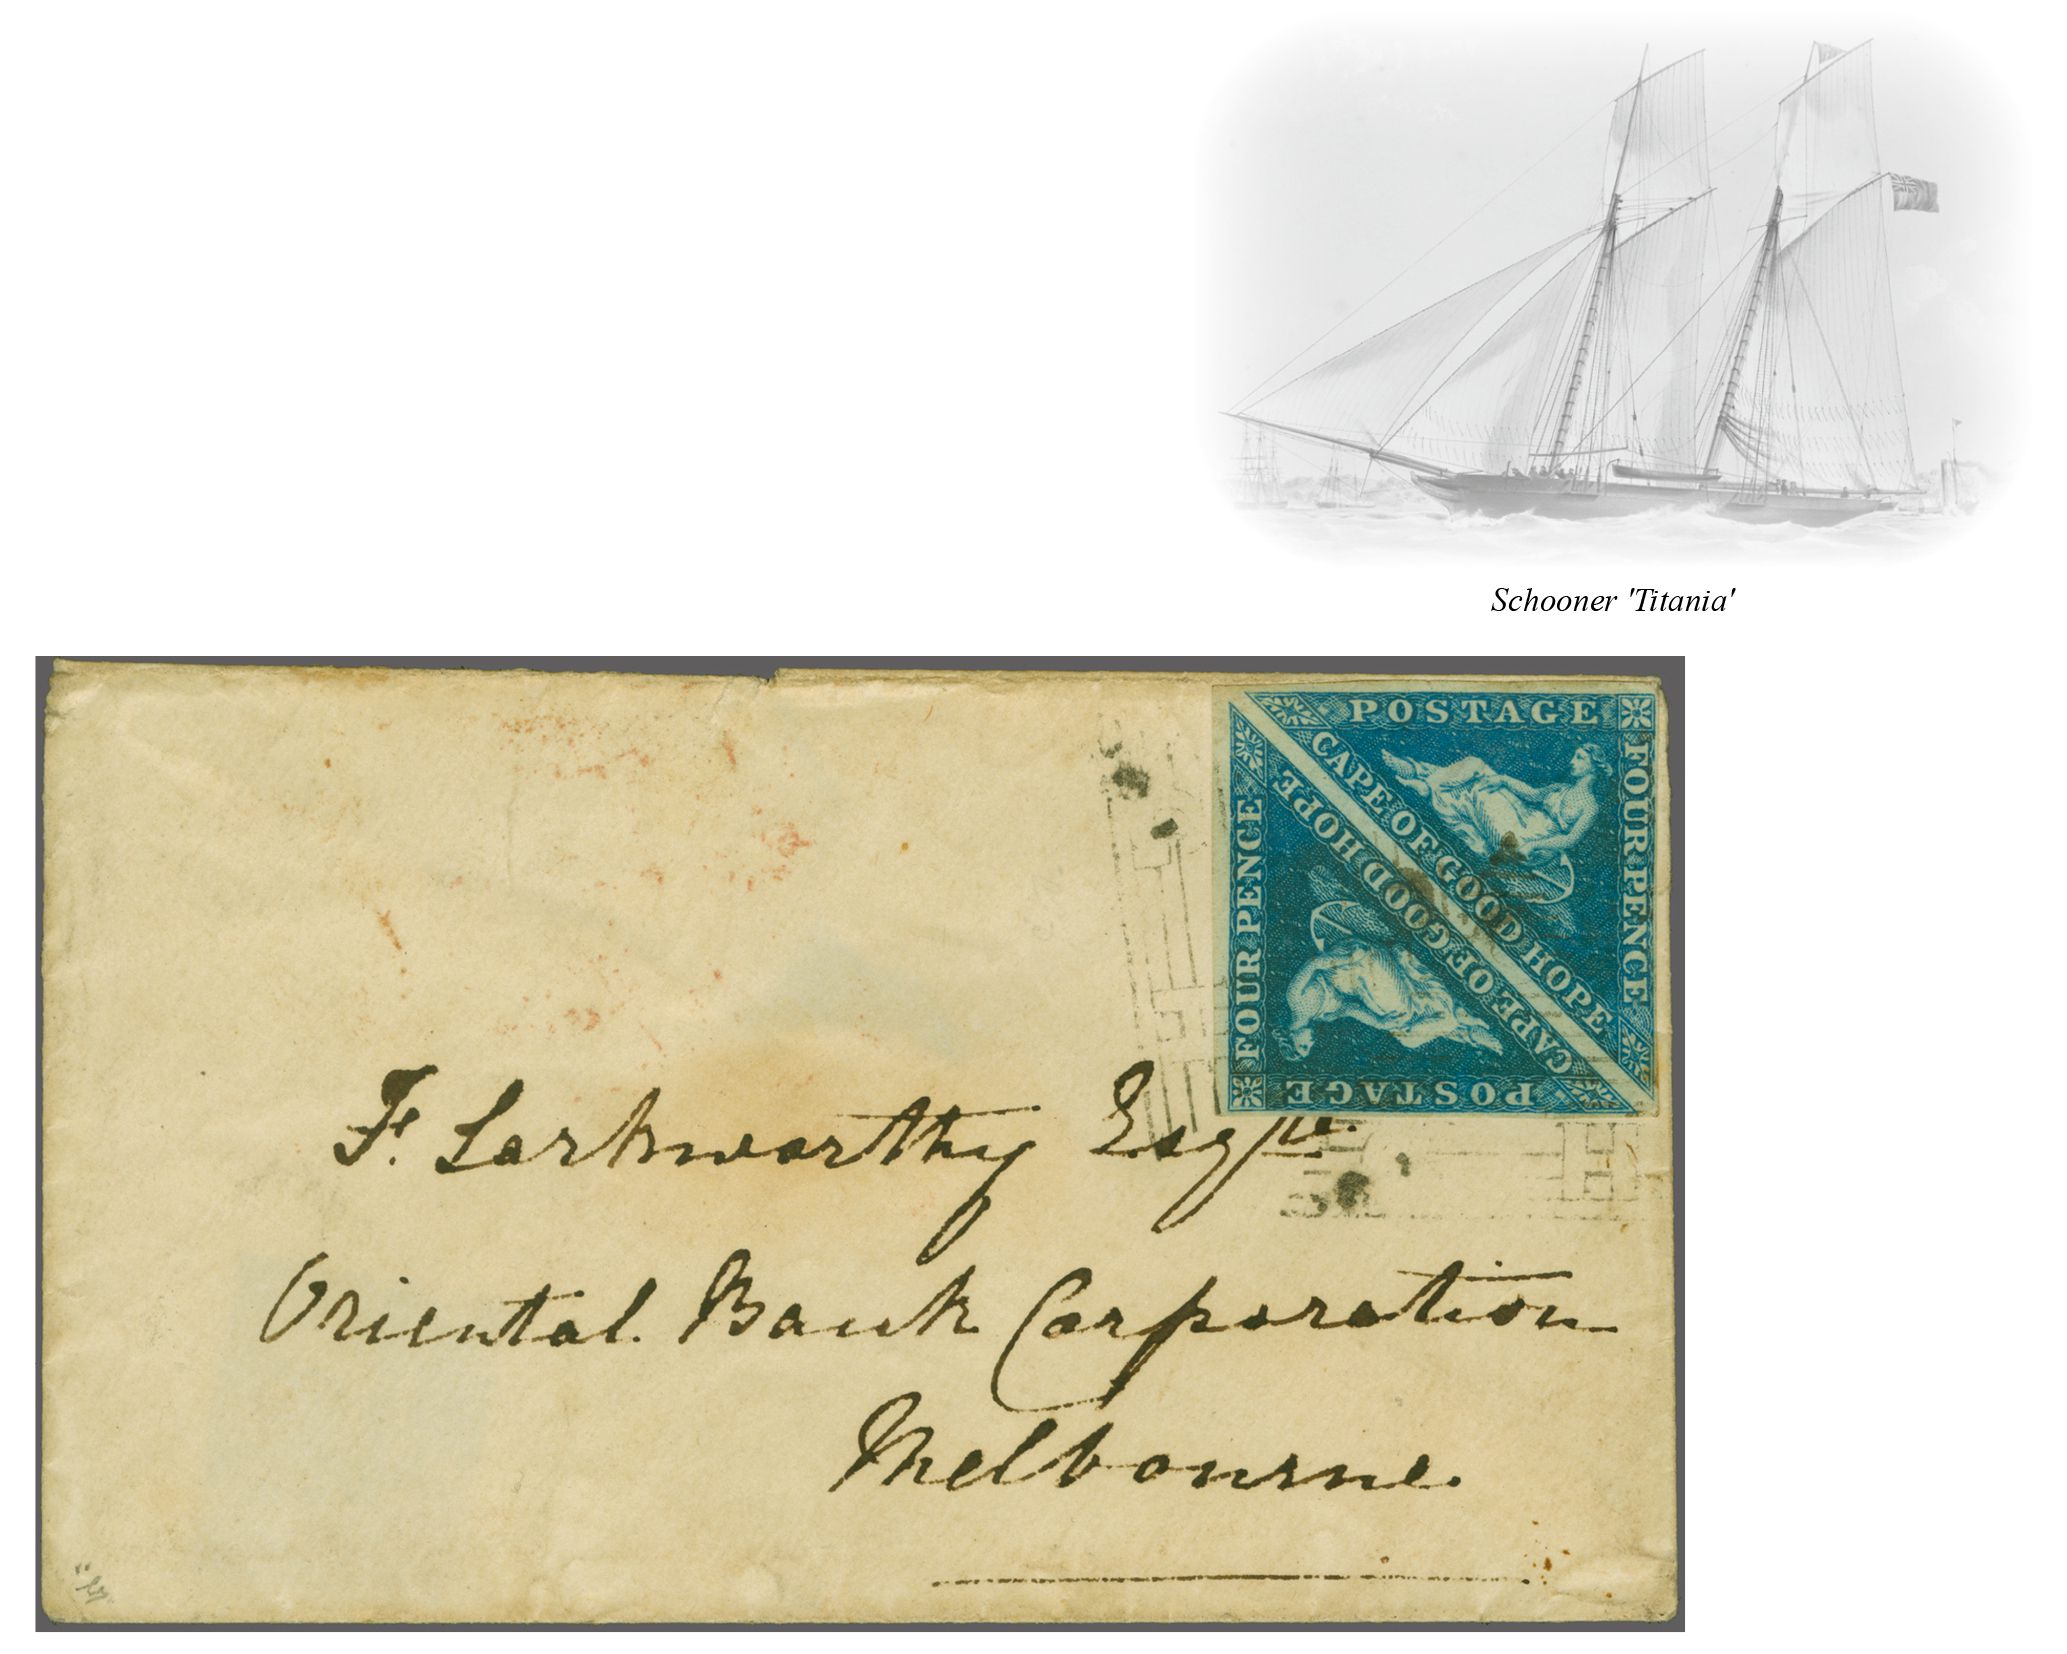 Schooner 'Titania'
POSTAGE
FOUR PENCE
CAPE OF GOOD HOPE
CAPE OF GOOD HOPE
FOUR PENCE
POSTAGE
F. Larkworthy Esqre.
Oriental Bank Corporation
Melbourne.